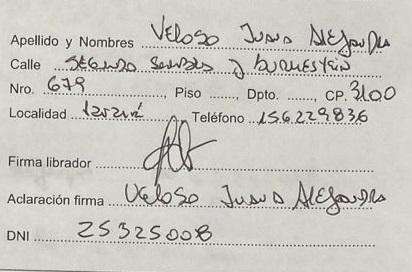 Apellido y Nombres Veloso Juana Alejandra
Calle Segundo y Burmestein
Nro. 679 Piso ....., Dpto. ......., CP. 3100
Localidad Teléfono 156229836
Firma librador
Aclaración firma Veloso Juana Alejandra
DNI 25325008